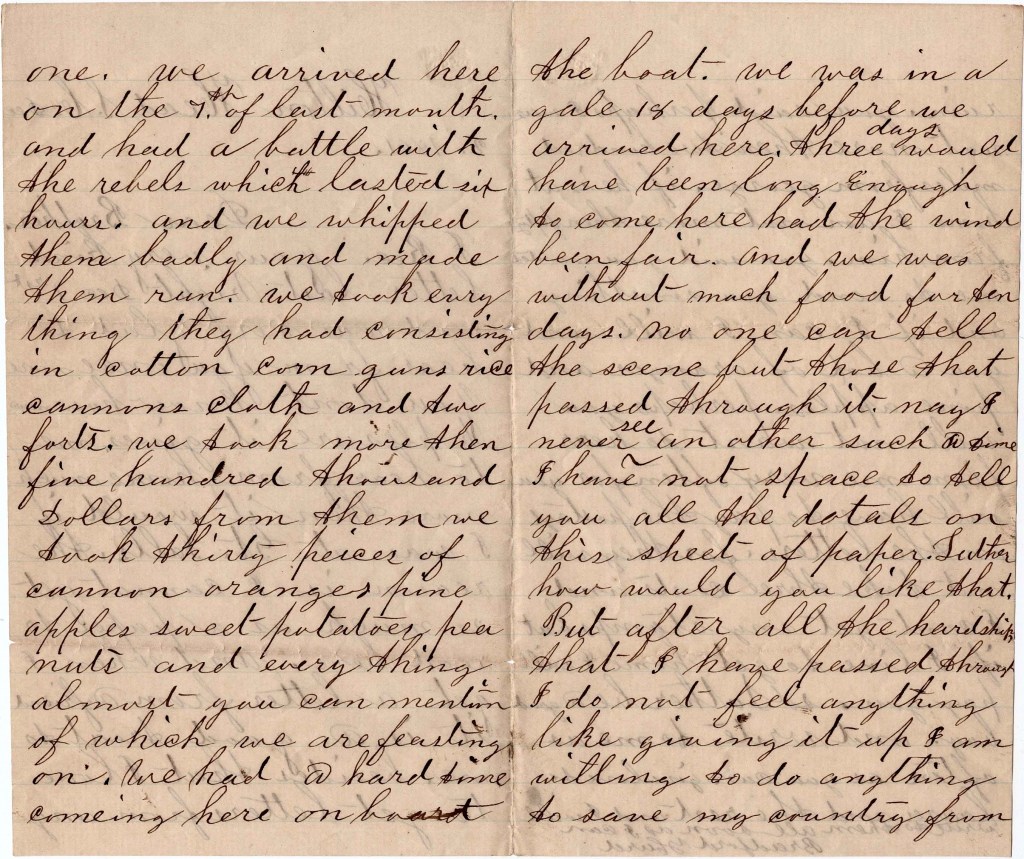 one. we arrived here
on the 7.th of last month.
and had a battle with
the rebels which lasted six
hours. and we whipped
them badly and made
them run. we took evry
thing they had consisting
in cotton corn guns rice
cannons cloth and two
forts. we took more then
five hundred thousand
Dollars from them we
took thirty peices of
cannon oranges pine
apples sweet potatoes pea
nuts and every thing
almost you can mention
of which we are feasting
on. We had a hard time
comeing here on board
the boat. we was in a
gale 18 days before we
arrived here. three days would
have been long Enough
to come here had the wind
been fair. and we was
without much food for ten
days. no one can tell
the scene but those that
passed through it. nay I
never see an other such a time
I have not space to tell
you all the dotals on
this sheet of paper. Luther
how would you like that.
But after all the hardships
that I have passed through
I do not feel anything
like giving it up I am
willing to do anything
to save my country from